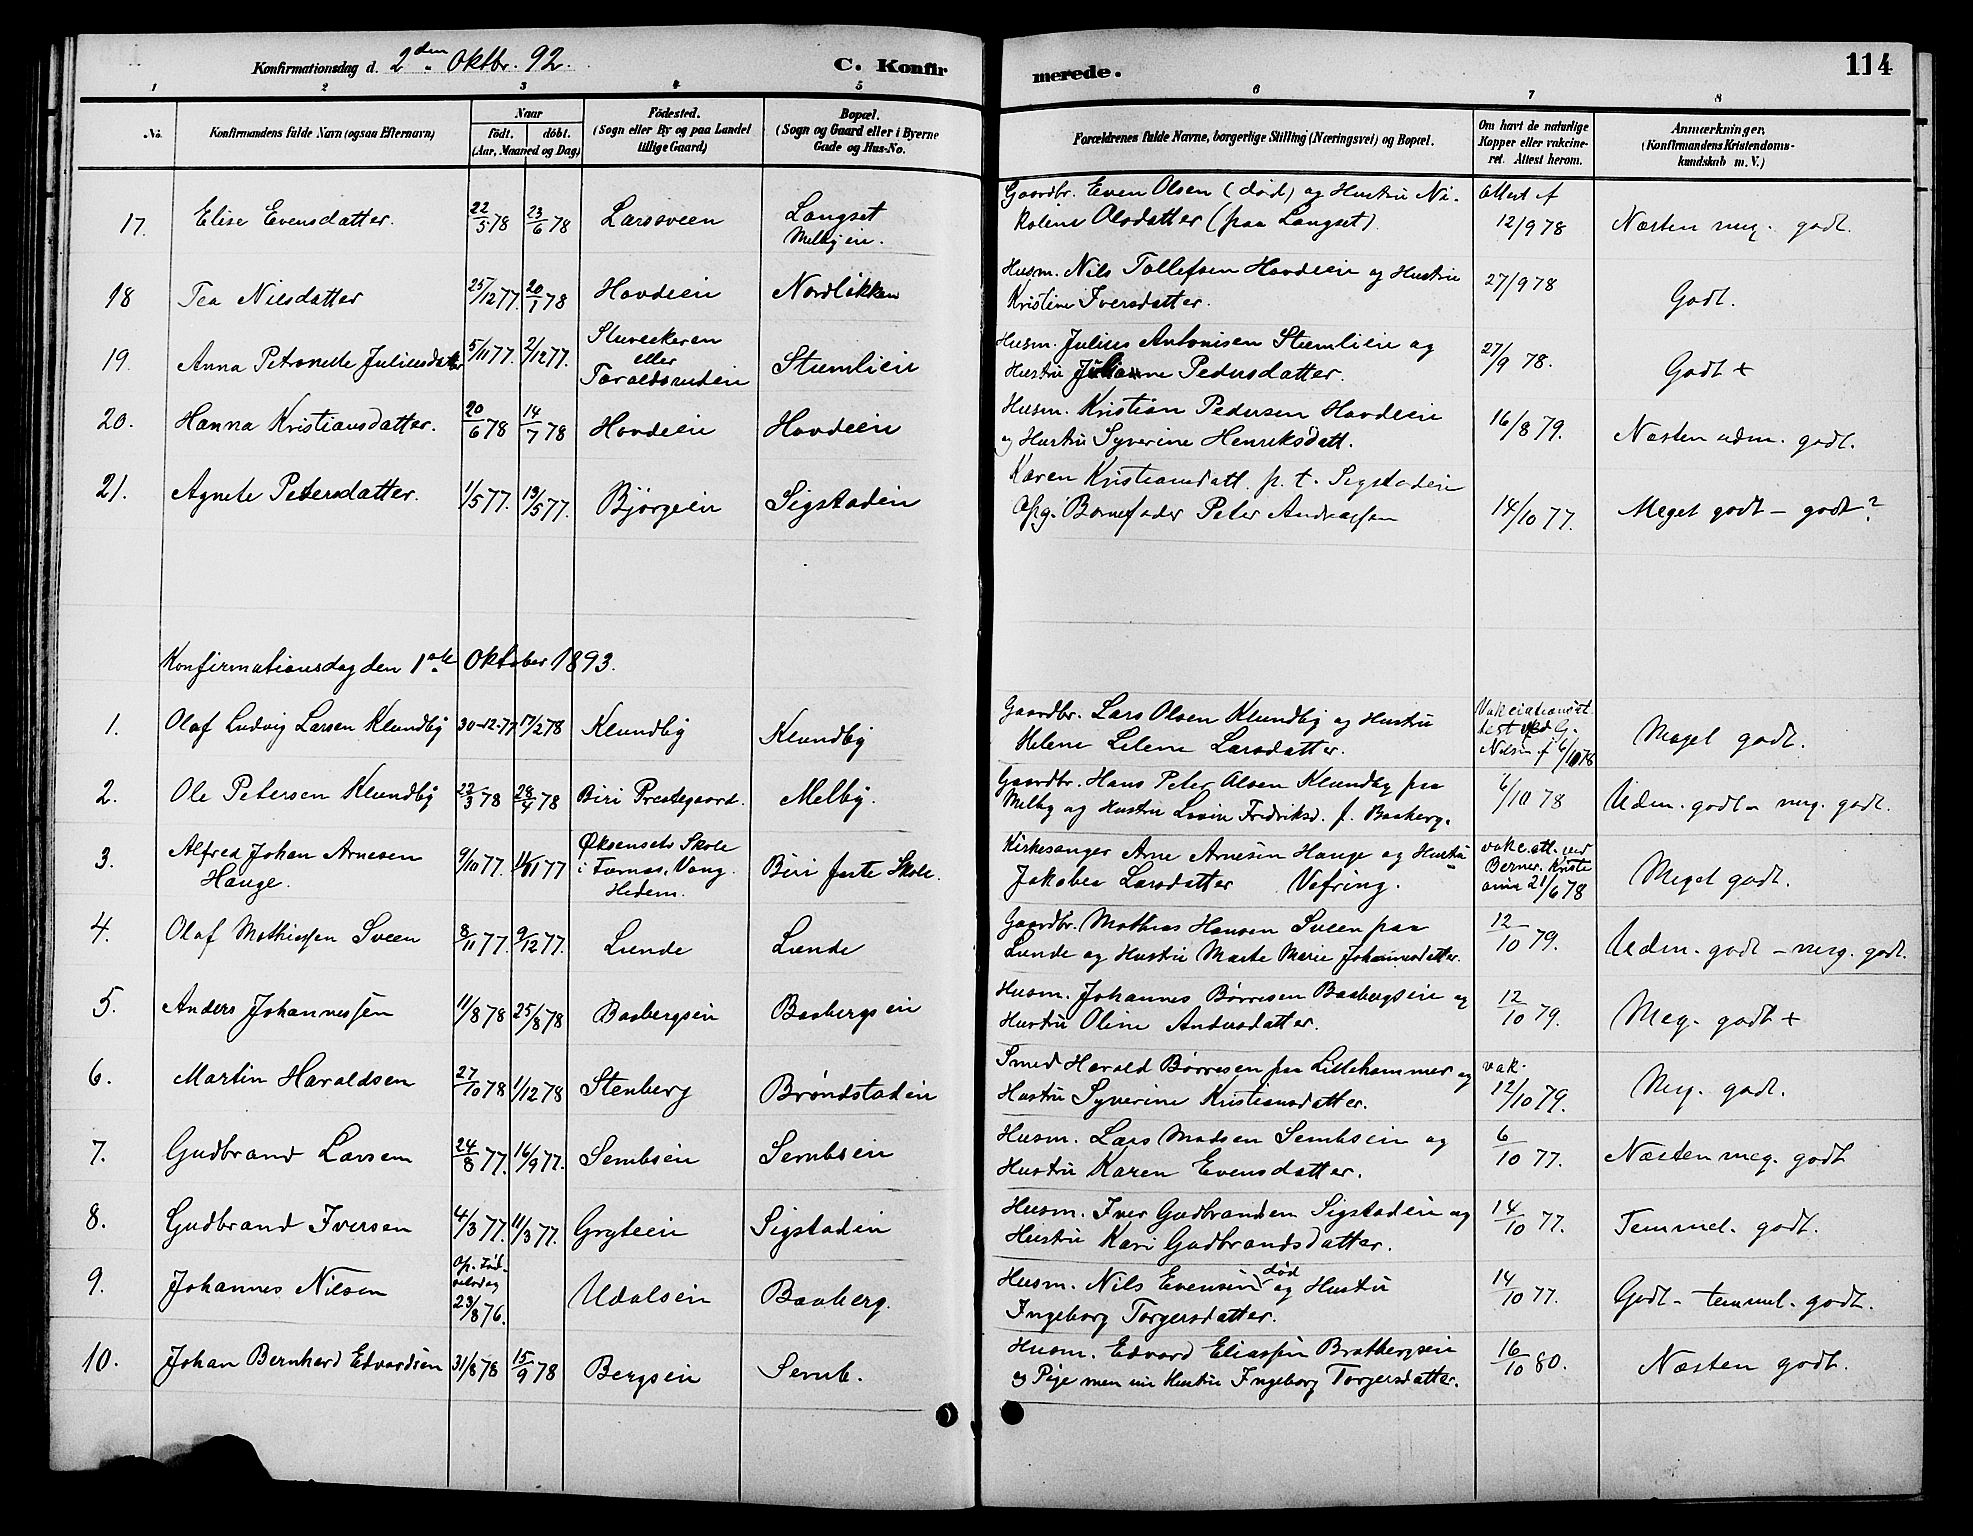 Konfirmationsdag d. 2den Oktbr. 92. C. Konfirmerede. 114
1 2 3 4 5 6 7 8
No. Konfirmandens fulde Navn (ogsaa Efternavn) Naar födt. döbt. (Aar, Maaned og Dag) Födested. (Sogn eller By og paa Landet tillige Gaard) Bopæl. (Sogn og Gaard eller i Byerne Gade og Hus-No. Forældrenes fulde Navne, borgerlige Stilling (Næringsvei) og Bopæl. Om havt de naturlige Kopper eller vakcineret. Attest herom. Anmærkninger. (Konfirmandens Kristendomskundskab m. V.)
17. Elise Evensdatter. 22/5 78 23/6 78 Larssveen Langset Melbyein. Gaardbr. Even Olsen (död) og Hustru Nikoline Olsdatter (paa Langset). Attest f 12/9 78 Næsten meg. godt.
18 Tea Nilsdatter 25/12 77. 20/1 78 Hovdeein Nordlökken Husm. Nils Tollefsen Hovdeein og Hustru Kristine Iversdatter. 27/9 78 Godt.
19. Anna Petronelle Juliusdatter 5/11 77. 2/12 77. eller Taraldsrudein Stumliein Husm. Julius Antonisen Stumliein og Hustru Juliane Pedersdatter. 27/9 78. Godt +
20. Hanna Kristiansdatter. 20/6 78 14/7 78 Hovdeein Hovdeein Husm. Kristian Pedersen Hovdeein og Hustru Syverine Henriksdatt. 16/8 79. Næsten udm. godt.
21. Agnete Petersdatter. 1/5 77. 13/5 77. Björgeein Sigstadein Karen Kristiansdatt. p. t. Sigstadein Opg. Barnefader Peter Andreassen 14/10 77. Meget godt – godt?
Konfirmationsdag den 1ste Oktober 1893.
1. Olaf Ludvig Larsen Klundby 30-12-77 17/2 78 Klundby Klundby Gaardbr. Lars Olsen Klundby og Hustru Helene Lilene Larsdatter. ved G. Nilsen f 6/10 78 Meget godt.
2. Ole Petersen Klundby 22/3 78 28/4 78 Biri Prestegaard. Melby. Gaardbr. Hans Peter Olsen Klundby paa Melby og Hustru Lovin Fridriksd. f. Baaberg. 6/10 78 Udm. godt – meg. godt.
3. Alfred Johan Arnesen Hauge. 9/10 77. 11/11 77 Øksensets Skole i Furnas, Vang. Hedem. Biri faste Skole. Kirkesanger Arne Arnesen Hauge og Hustru Jakobea Larsdatter Vefring. vakc. att. ved Berner. Kristiania 21/6 78 Meget godt.
4. Olaf Mathiessen Sveen 8/11 77. 9/12 77. Lunde Lunde Gaardbr. Mathias Hansen Sveen paa Lunde og Hustru Marte Marie Johannesdatter. 12/10 79. Udm. godt – meg. godt.
5. Anders Johannessen 11/8 78 25/8 78 Baabergsein Baabergsein Husm. Johannes Børresen Baabergsein og Hustru Oline Andersdatter. 12/10 79. Meg. godt +
6. Martin Haraldsen 27/10 78 1/12 78 Stenberg Bröndstadein Smed Harald Børresen paa Lillehammer og Hustru Syverine Kristiansdatter. vak. 12/10 79. Meg. godt.
7. Gudbrand Larsen 24/8 77. 16/9 77. Sembsein Sembsein Husm. Lars Madsen Sembsein og Hustru Karen Evensdatter. 6/10 77. Næsten meg. godt
8. Gudbrand Iversen 4/3 77. 11/3 77. Gryteein Sigstadein Husm. Iver Gudbrandsen Sigstadein og Hustru Kari Gudbrandsdatter. 14/10 77. Temmel. godt.
9. Johannes Nilsen Op. Födselsdag 23/8 76. Udalsein Baaberg. Husm. Nils Evensen död og Hustru Ingeborg Torgersdatter. 14/10 77. Godt – temmel. godt.
10. Johan Bernhard Edvardsen 31/8 78 15/9 78 Bergsein Semb. Husm. Edvard Eliassen Bratbergsein og Pige men nu Hustru Ingeborg Torgersdatter. 16/10 80. Næsten godt.